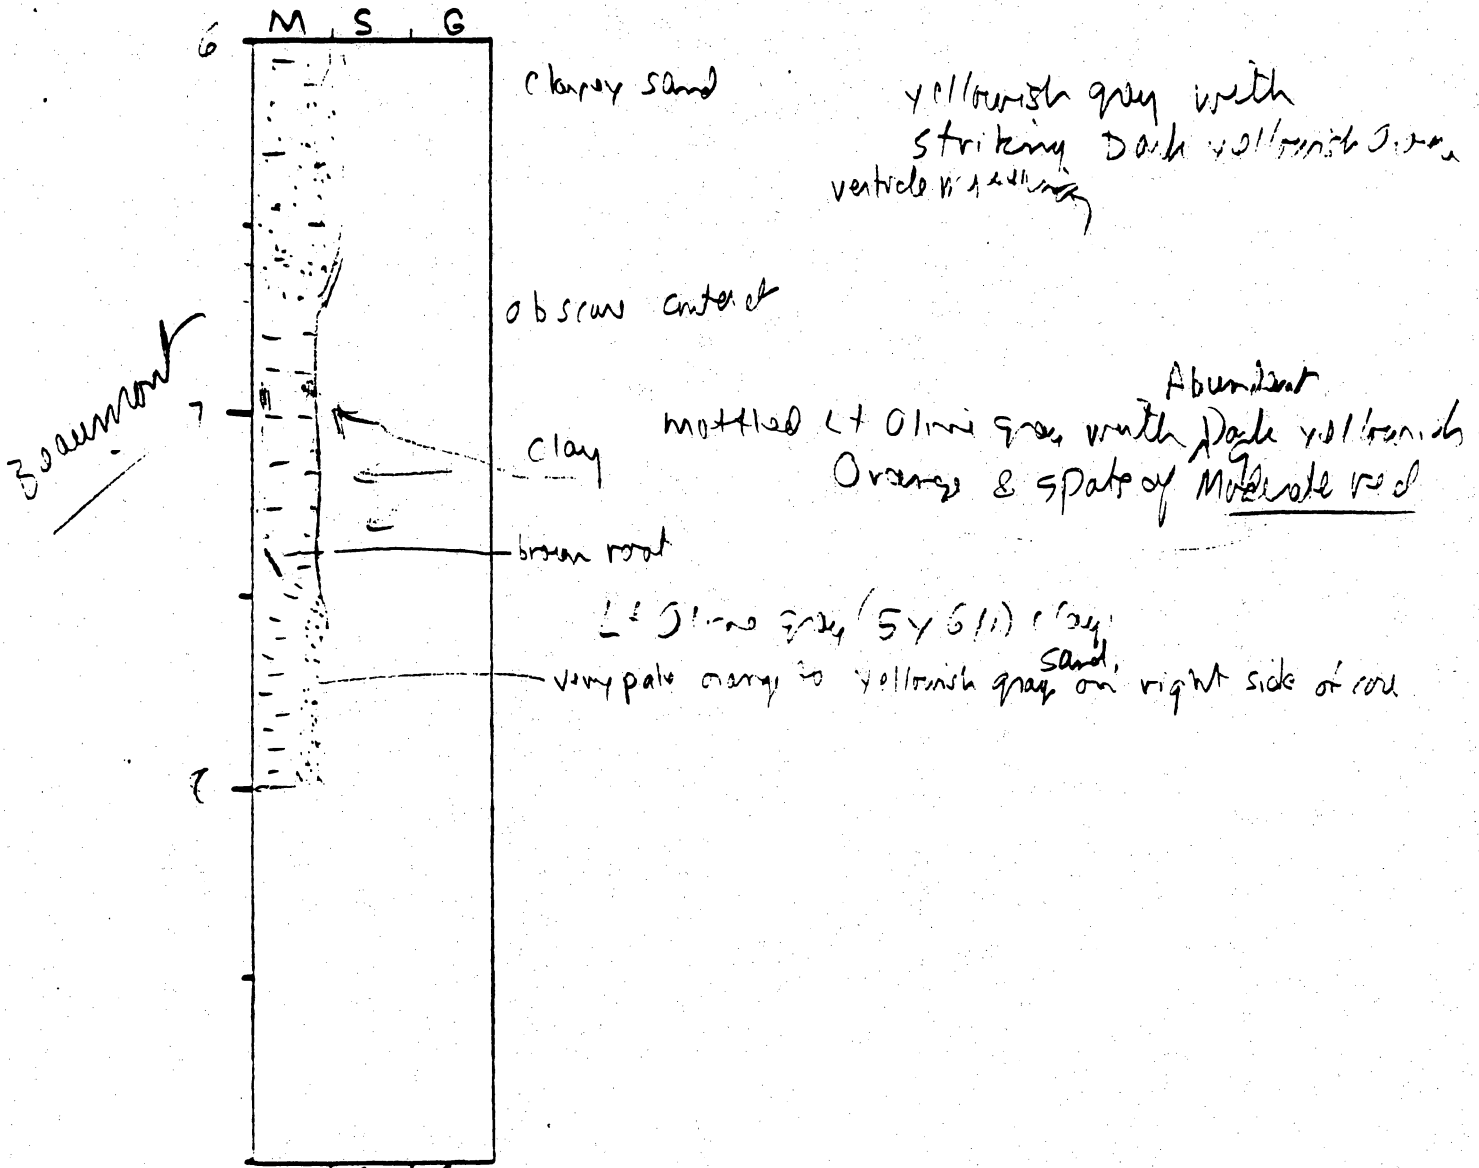 M S G
6
clayey sand
yellowish gray with
striking Dark yellowish
verticle
obscure contact
Beaumont
Abundant
7
mottled Lt Olive gray with Dark yellowish
clay
Orange & spots of Moderate red
brown root
Lt Olive gray (5Y 6/1) clay
sand,
very pale orange to yellowish gray on right side of core